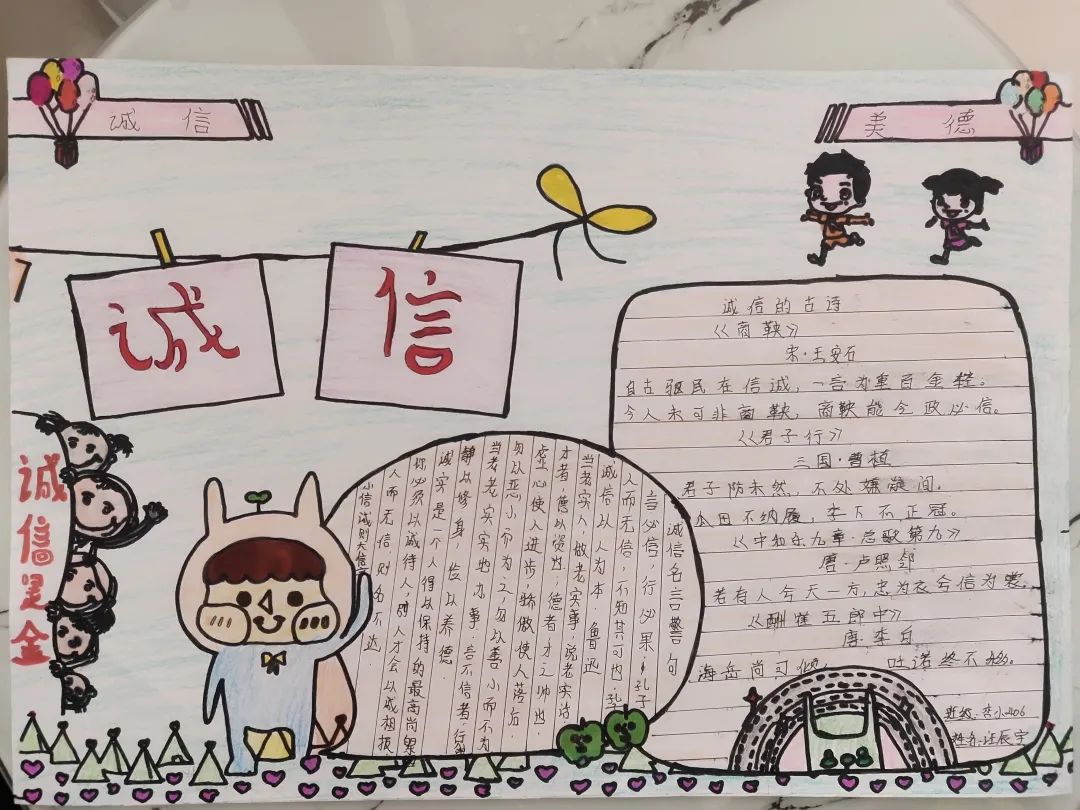 诚 信
美 德
诚
信
诚信是金
诚信的古诗
《商鞅》
宋·王安石
自古驱民在信诚，一言为重百金轻。
今人未可非商鞅，商鞅能令政必信。
《君子行》
三国·曹植
君子防未然，不处嫌疑间。
瓜田不纳履，李下不正冠。
《中和乐九章·总歌第九》
唐·卢照邻
若有人兮天一方，忠为衣兮信为裳。
《酬崔五郎中》
唐·李白
海岳尚可倾， 吐诺终不移。
诚信名言警句
言必信，行必果·孔子
人而无信，不知其可也 孔子
诚信以人为本·鲁迅
当老实人，做老实事，说老实话
才者，德以资也；德者，才之帅也
虚心使人进步，骄傲使人落后
勿以恶小而为之，勿以善小而不为
当老老实实地办事·言不信者，行
静以修身，俭以养德·
诚实是一个人得以保持的最高尚
你必须以诚待人，别人才会以诚相报
人而无信则名不达·
小信诚则大信
姓名: